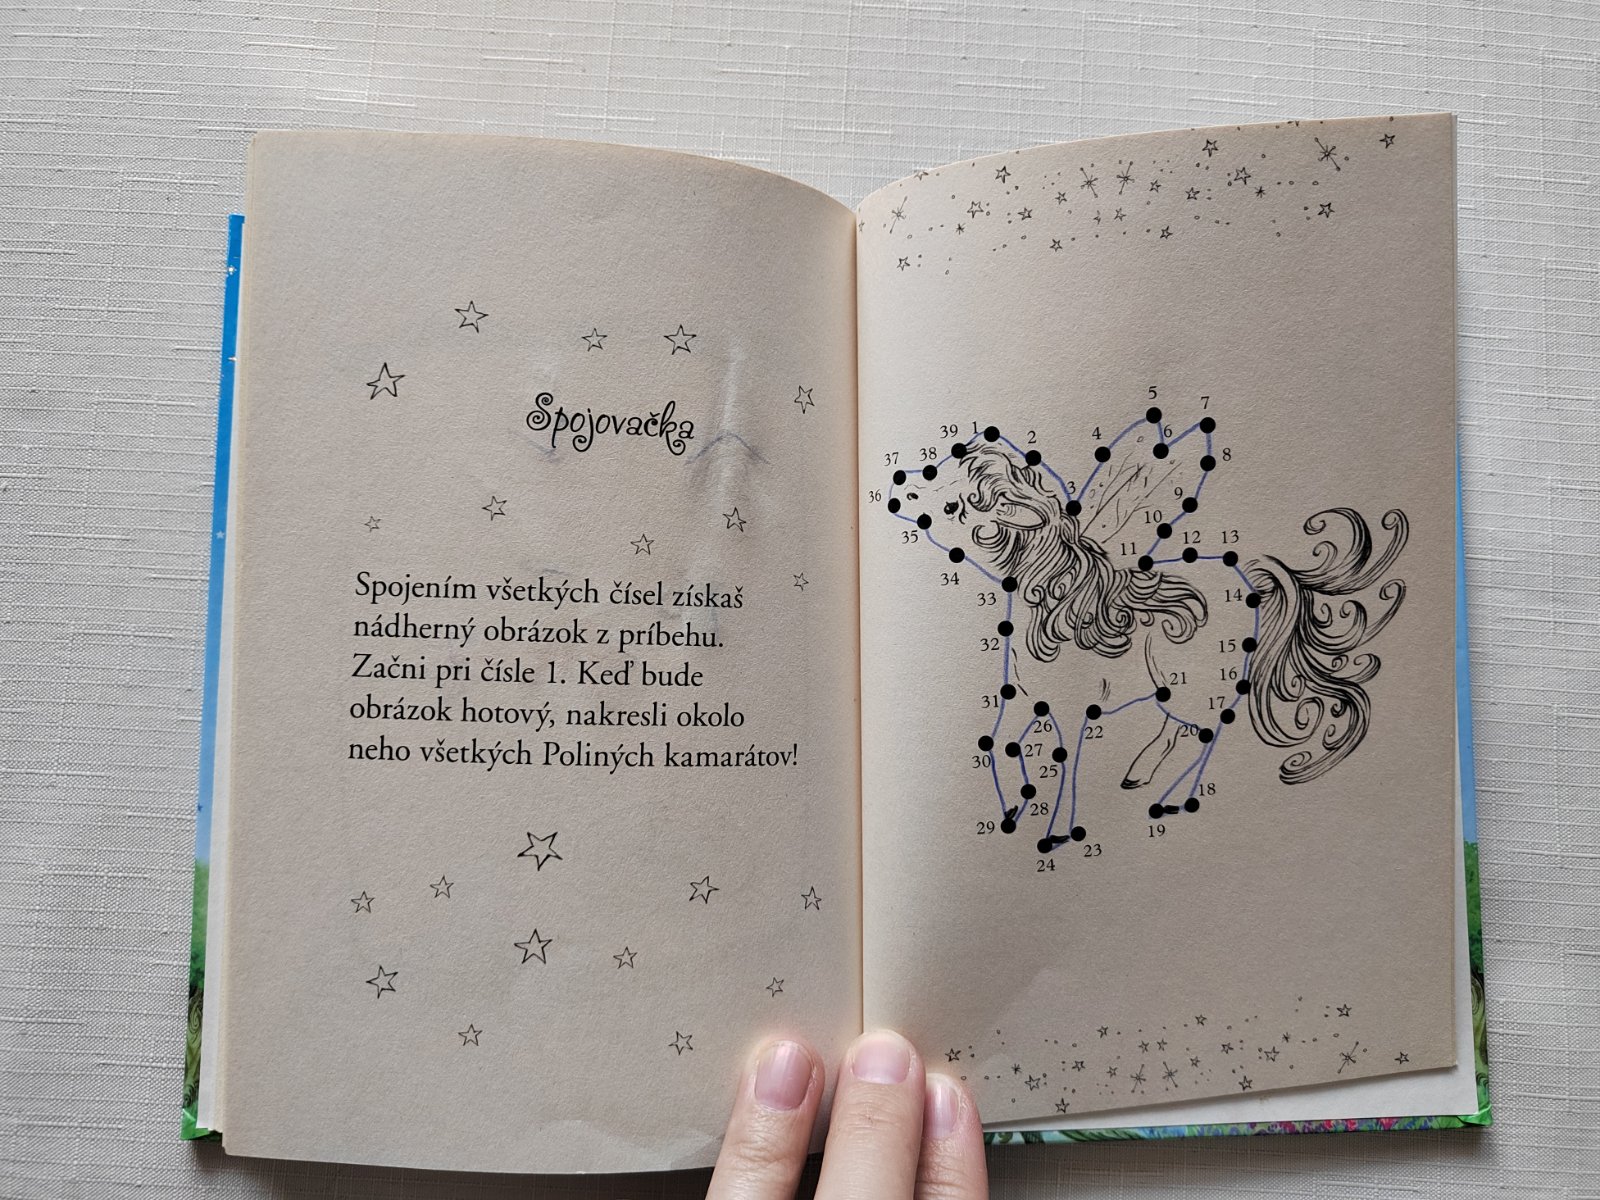 Spojovačka
Spojením všetkých čísel získaš
nádherný obrázok z príbehu.
Začni pri čísle 1. Keď bude
obrázok hotový, nakresli okolo
neho všetkých Poliných kamarátov!
1
2
3
4
5
6
7
8
9
10
11
12
13
14
15
16
17
18
19
20
21
22
23
24
25
26
27
28
29
30
31
32
33
34
35
36
37
38
39